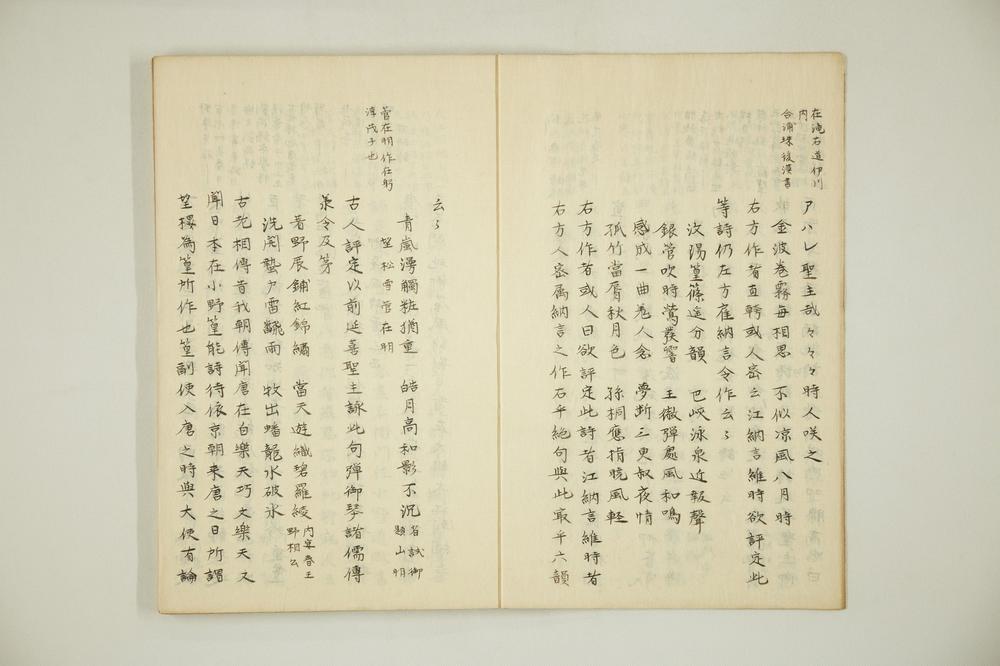 在滝右道伊川
内
合浦珠後漢書
アハレ聖主哉々々々時人咲之
金波巻霧毎相思 不似凉風八月時
右方作者直幹或人密云江納言維時欲評定此
等詩仍左方雇納言令作云々
汶陽篁篠遥分韻 巴峡泳泉近報聲
銀管吹時鶯發響 玉徽弾處風和鳴
感成一曲羌人念 夢断三更叔夜情
孤竹當唇秋月色 孫桐應指暁風軽
右方作者或人曰欲評定此詩者江納言維時者
右方人密属納言之作右乎絶句與此最平六韻
菅在明作在躬
淳茂子也
云々
青嵐漫觸粧猶重 皓月高和影不沉 省試御
題山明
望松雪菅在明
古人評定以前延喜聖主詠此句弾御琴諸儒傳
羕令及第
着野辰鋪紅錦繡 當天遊織碧羅綾 内宴春王
野相公
洗閑蟄戸雷𩙪雨 牧出蟠龍水破氷
古老相傳昔我朝傳聞唐在白樂天巧文樂天又
聞日本在小野篁能詩待依京朝来唐之日所謂
望樓為篁所作也篁副使入唐之時與大使有論